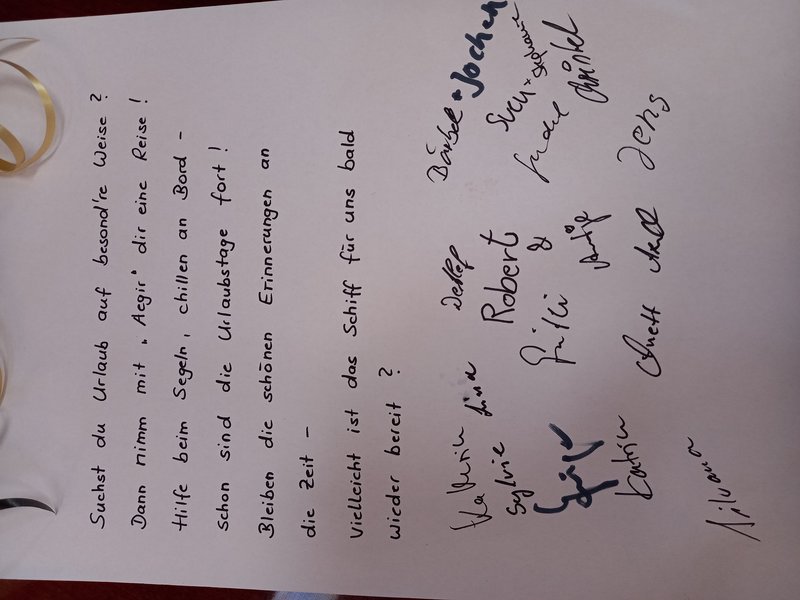 Suchst du Urlaub auf besond're Weise?
Dann nimm mit „Aegir" dir eine Reise!
Hilfe beim Segeln, chillen an Bord -
schon sind die Urlaubstage fort!
Bleiben die schönen Erinnerungen an
die Zeit -
Vielleicht ist das Schiff für uns bald
wieder bereit?
Kathrin Detlef Bärbel + Jochen
Sylvie Lina Robert Sven + Stephanie
&
Katrin Anett Jens
Silvana